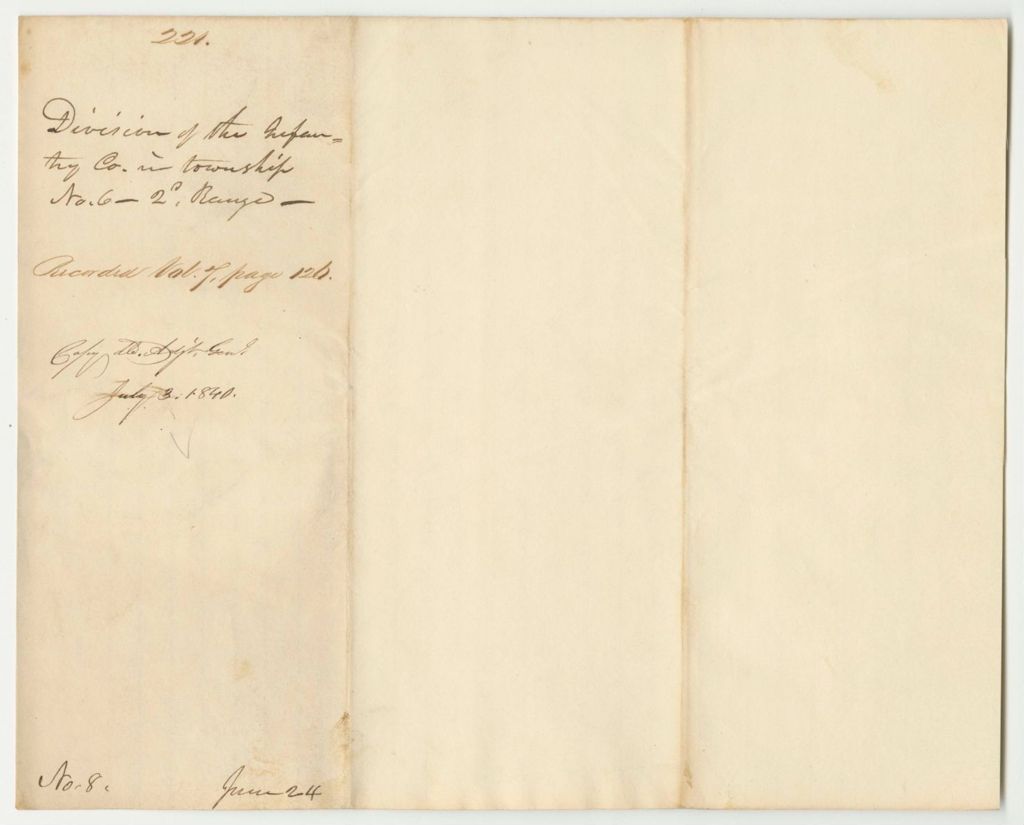 221.
Division of the Infan=
try Co. in township
No. 6 — 2d. Range —
Recorded Vol. 7, page 126.
Copy dd. Adjt. Genl.
July 3. 1840.
No. 8.
June 24